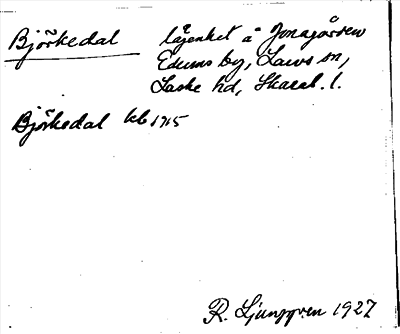 Björkedal lägenhet å Jonsgården
Edums by, Laws sn,
Laske hd, Skarab. l.
Björkedal kb 1915
R. Ljunggren 1927